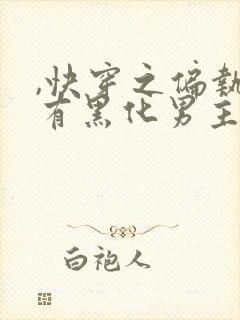 ,快穿之偏執
有黑化男主
白袍人